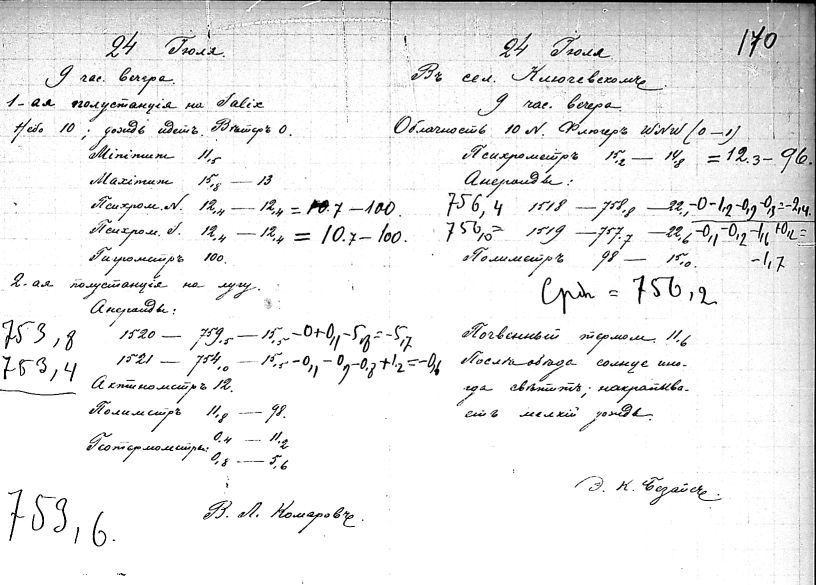 24 Іюля.
9 час. вечера.
1-ая полустанція на Salix
Небо 10; дождь идетъ. Вѣтеръ 0.
Minimum 11,5
Maximum 15,8 — 13
Психром. N. 12,4 — 12,4 = 10.7 — 100.
Психром. S. 12,4 — 12,4 = 10.7 — 100.
Гигрометръ 100.
2-ая полустанція на лугу.
Анероиды:
753,8 1520 — 759,5 — 15,5 -0+0,1-5,8=-5,7
753,4 1521 — 754,0 — 15,5 -0,1-0,9-0,8+1,2=-0,6
Актинометръ 12.
Полиметръ 11,8 — 98.
Геотермометры: 0,4 — 11,2
0,8 — 5,6
753,6.
В. Л. Комаровъ.
170
24 Іюля
Въ сел. Ключевскомъ
9 час. вечера
Облачность 10 N. Флюгеръ WNW (0-1)
Психрометръ 15,2 — 14,8 = 12.3 — 96.
Анероиды:
756,4 1518 — 758,8 — 22, -0-1,2-0,9-0,3=-2,4
756,0= 1519 — 757,7 — 22,6 -0,1-0,2-1,6+0,2=
Полиметръ 98 — 15,0 -1,7
Срдн = 756,2
Почвенный термом. 11,6
Послѣ обѣда солнце ино-
гда свѣтитъ; накрапыва-
етъ мелкій дождь.
Э. К. Безайсъ.